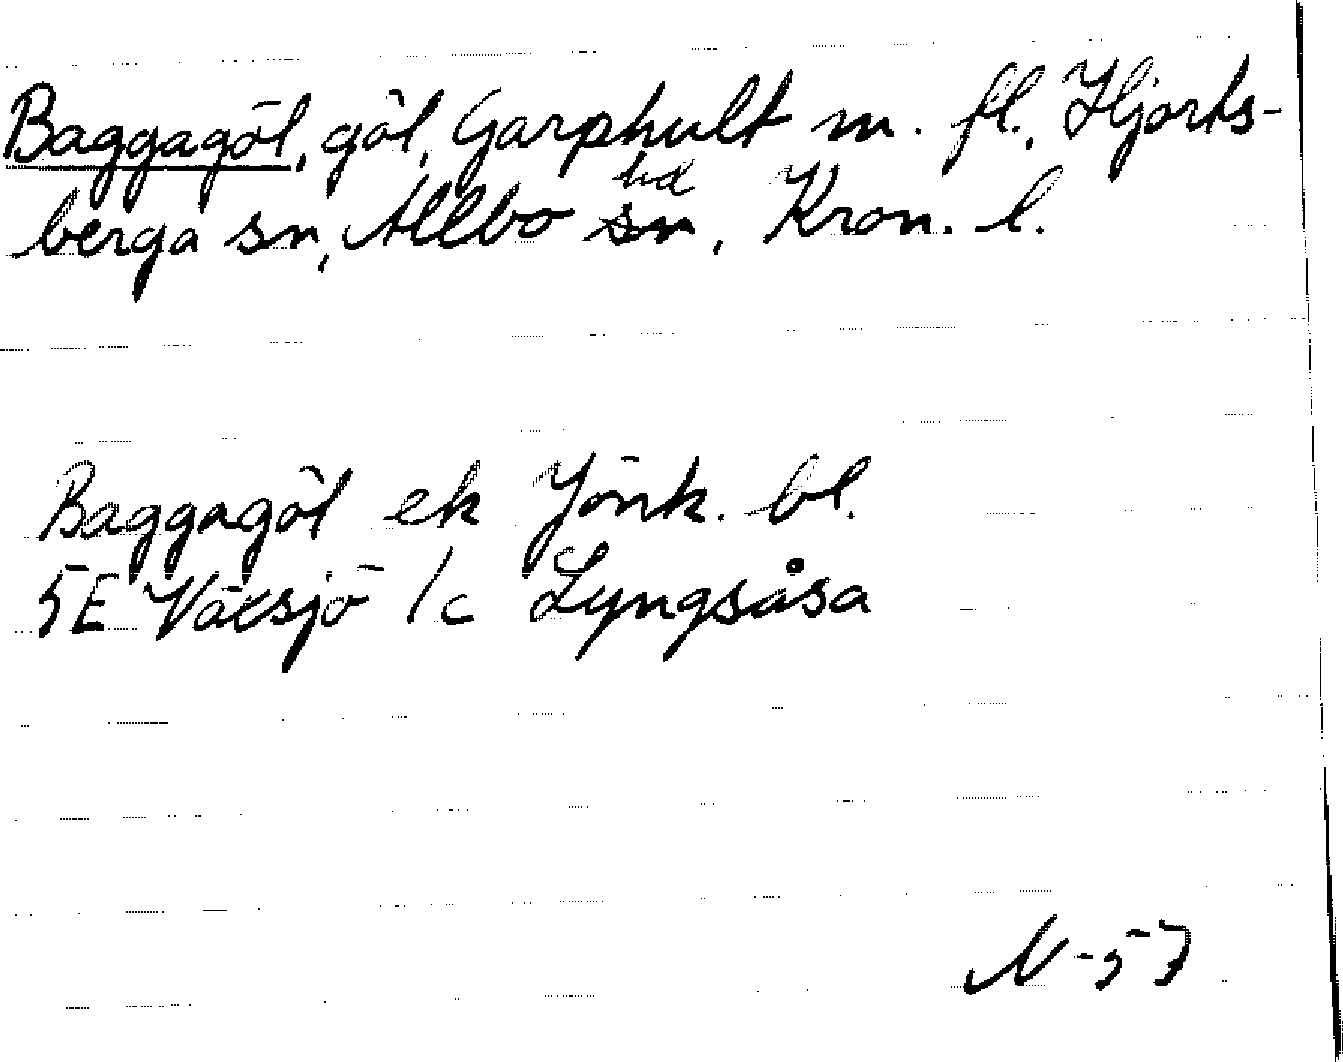 Baggagöl, göl, Garphult m. fl., Hjorts-
berga sn, Allbo sn hd, Kron. l.
Baggagöl ek Jönk. bl.
5E Växjö 1c Lyngsåsa
N-57